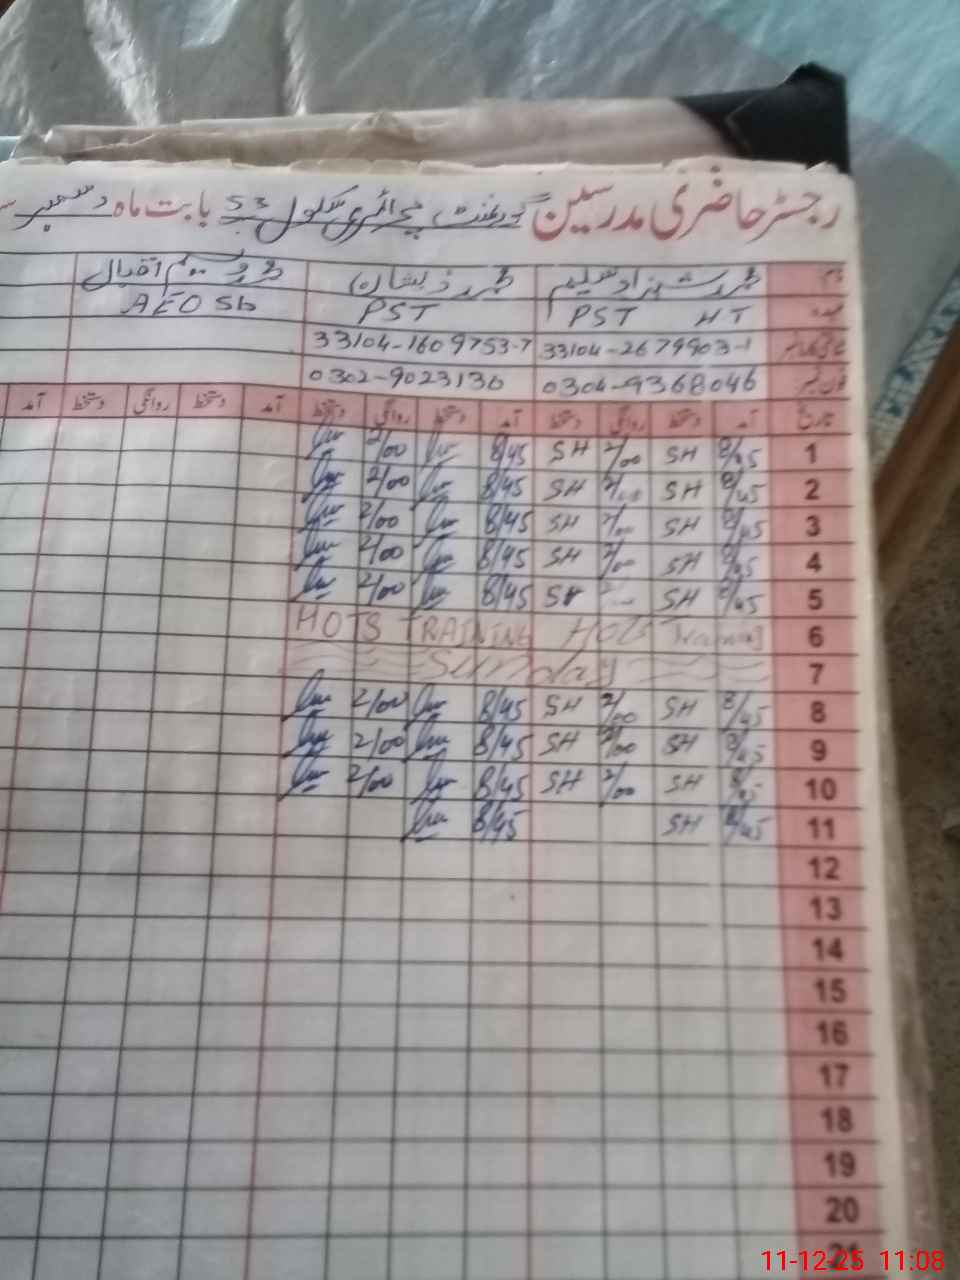 رجسٹر حاضری مدرسین گورنمنٹ پرائمری سکول 53 بابت ماہ دسمبر
نام محمد شہزاد سلیم محمد ذیشان محمد وسیم اقبال
عہدہ PST HT PST AEO Sb
شناختی کارڈ نمبر 33104-2679903-1 33104-1609753-7
فون نمبر 0304-9368046 0302-9023130
تاریخ آمد دستخط روانگی دستخط آمد دستخط روانگی دستخط آمد دستخط روانگی دستخط آمد
1 8/45 SH 2/00 SH 8/45 2/00
2 8/45 SH 2/00 SH 8/45 2/00
3 8/45 SH 2/00 SH 8/45 2/00
4 8/45 SH 2/00 SH 8/45 2/00
5 8/45 SH SH 8/45 2/00
6 HOTS TRAINING Hots Training
7 Sunday
8 8/45 SH 2/00 SH 8/45 2/00
9 8/45 SH 2/00 SH 8/45 2/00
10 8/45 SH 2/00 SH 8/45 2/00
11 8/45 SH 8/45
12
13
14
15
16
17
18
19
20
21
11-12-25 11:08